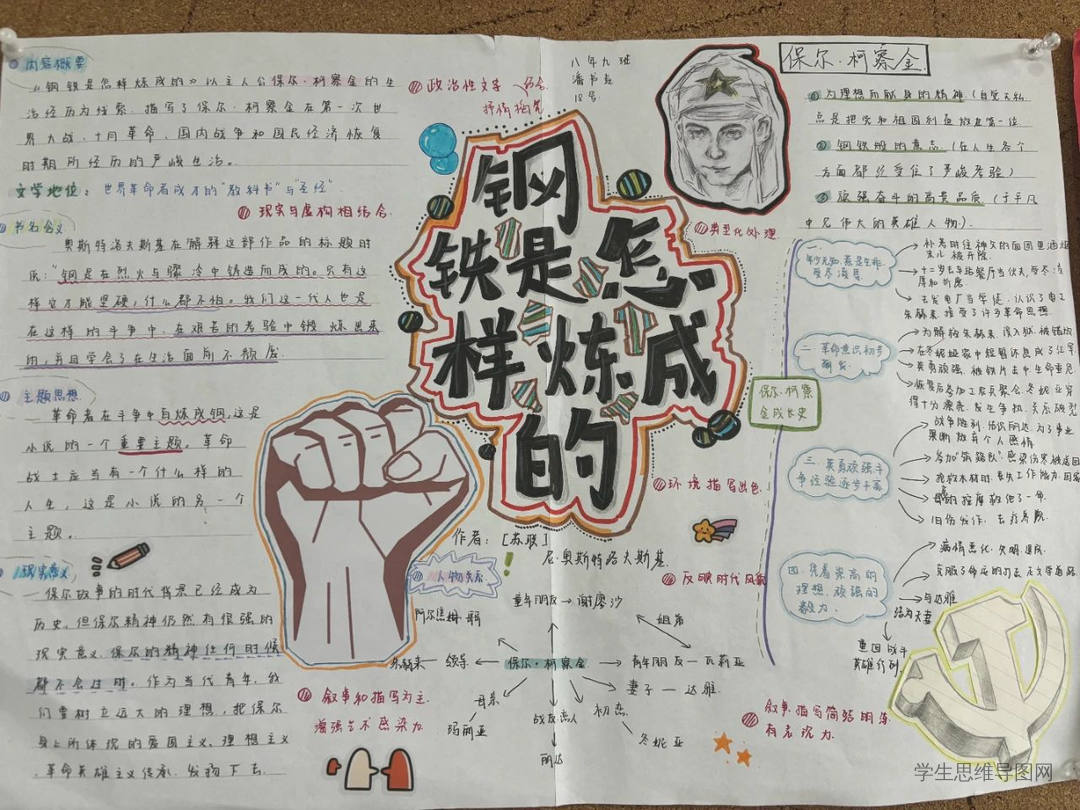 内容概要
《钢铁是怎样炼成的》以主人公保尔·柯察金的生
活经历为线索,描写了保尔·柯察金在第一次世
界大战、十月革命、国内战争和国民经济恢复
时期所经历的严峻生活。
文学地位:世界革命者成才的"教科书"与"圣经"
现实与虚构相结合
书名含义
奥斯特洛夫斯基在解释这部作品的标题时
说:"钢是在烈火与骤冷中铸造而成的。只有这
样它才能坚硬,什么都不怕。我们这一代人也是
在这样的斗争中、在艰苦的考验中锻炼出来
的,并且学会了在生活面前不颓废
主题思想
革命者在斗争中百炼成钢,这是
小说的一个重要主题。革命
战士应当有一个什么样的
人生,这是小说的另一个
主题。
现实意义
保尔故事的时代背景已经成为
历史,但保尔精神仍然有很强的
现实意义,保尔的精神任何时候
都不会过时。作为当代青年,我
们要树立远大的理想,把保尔
身上所体现的爱国主义、理想主义
、革命英雄主义传承、发扬下去
政治性文学
八年九班
潘书
18号
钢
铁是怎
样炼成
的
典型化处理
环境描写出色
反映时代风貌
作者:[苏联]
尼·奥斯特洛夫斯基
人物关系
童年朋友→谢廖沙
阿尔焦姆
朱赫来 领导
保尔·柯察金
青年朋友—瓦莉亚
妻子—达雅
母亲
玛丽亚
战友恋人
丽达
初恋
冬妮亚
叙事和描写为主
增强
感染力
叙事、描写简洁明
有表现力
保尔·柯察金
为理想而献身的精神(自觉无私
点是把党和祖国利益放在第一位
钢铁般的意志(在人生各个
方面都经受住了严峻考验)
顽强奋斗的高贵品质(于平凡
中见伟大的英雄人物)
保尔·柯察
金成长史
一、
年少无知,惹是生非,
受尽凌辱
补考时往神父的面团里洒烟
末儿,被开除
十二岁去车站餐厅当伙夫,受尽凌
辱和折磨
去发电厂当学徒,认识了电工
朱赫来,接受了许多革命思想
二、革命意识初步
萌发
为解救朱赫来,
英勇顽强,被铁片击中生命垂危
三、英勇顽强斗
争经验逐步丰富
旧伤发作,去疗养院
四、凭着崇高的
理想,顽强的
毅力
病情恶化,失明,
与达雅
结为夫妻
重回战斗
英雄行列
学生思维导图网